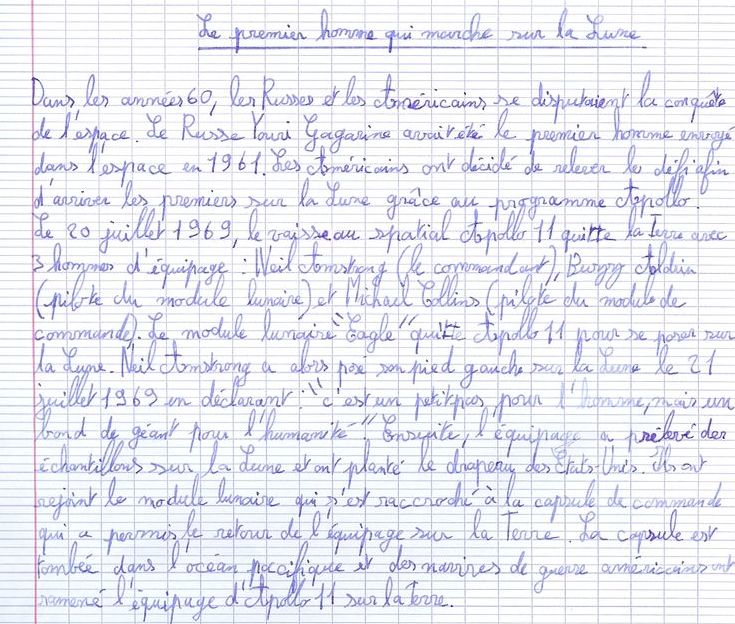 Le premier homme qui marche sur la Lune
Dans les années 60, les Russes et les Américains se disputaient la conquête
de l'espace. Le Russe Youri Gagarine avait été le premier homme envoyé
dans l'espace en 1961. Les Américains ont décidé de relever le défi afin
d'arriver les premiers sur la Lune grâce au programme Apollo.
Le 20 juillet 1969, le vaisseau spatial Apollo 11 quitte la Terre avec
3 hommes d'équipage : Neil Amstrong (le commandant), Buzzy Aldrin
(pilote du module lunaire) et Michaël Collins (pilote du module de
commande). Le module lunaire "Eagle" quitte Apollo 11 pour se poser sur
la Lune. Neil Amstrong a alors posé son pied gauche sur la Lune le 21
juillet 1969 en déclarant : "c'est un petit pas pour l'homme, mais un
bond de géant pour l'humanité". Ensuite, l'équipage a prélevé des
échantillons sur la Lune et ont planté le drapeau des États-Unis. Ils ont
rejoint le module lunaire qui s'est raccroché à la capsule de commande
qui a permis le retour de l'équipage sur la Terre. La capsule est
tombée dans l'océan paccifique et des navires de guerre américains ont
ramené l'équipage d'Apollo 11 sur la Terre.